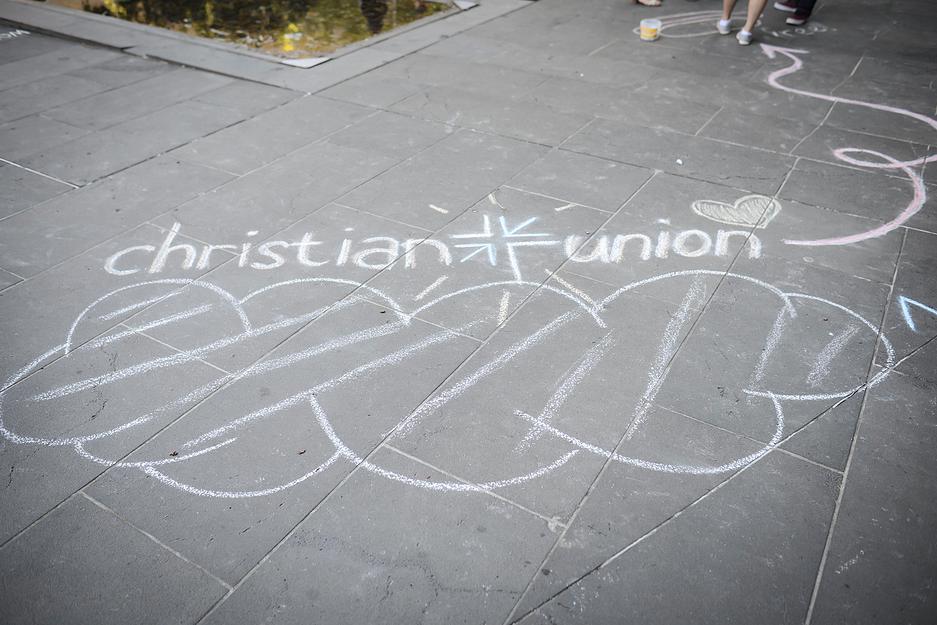 christian union